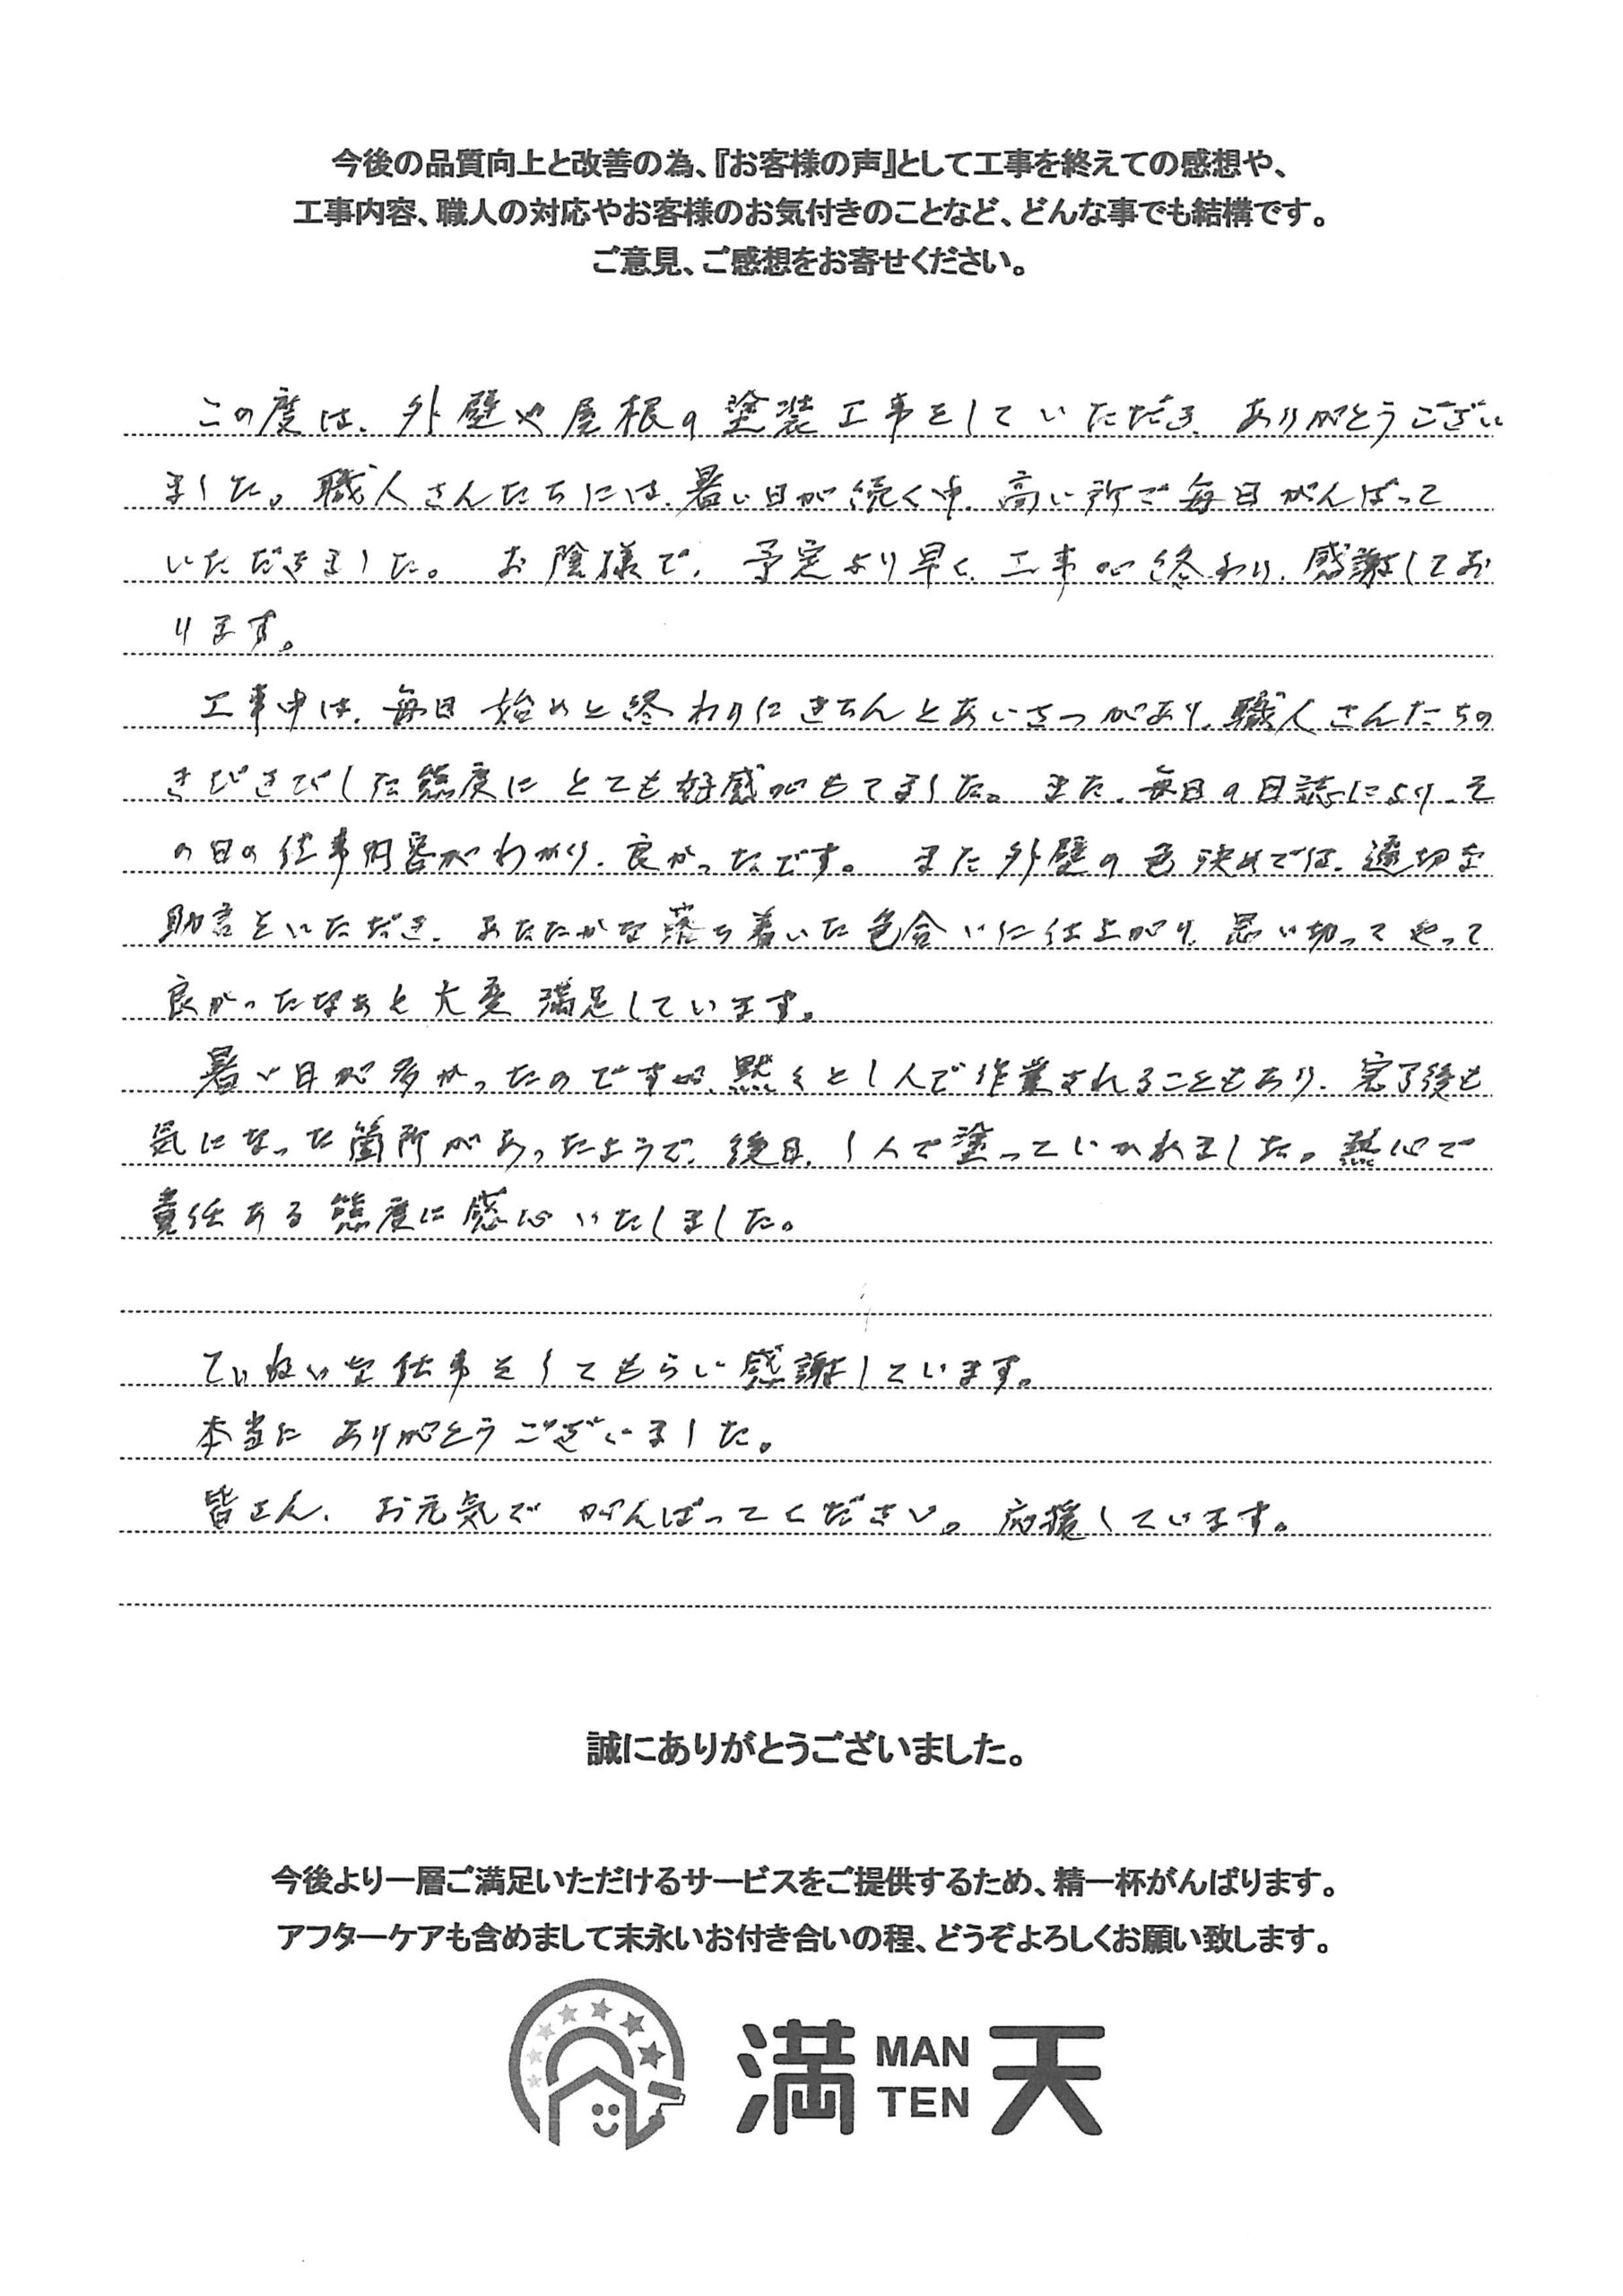 今後の品質向上と改善の為、『お客様の声』として工事を終えての感想や、
工事内容、職人の対応やお客様のお気付きのことなど、どんな事でも結構です。
ご意見、ご感想をお寄せください。
この度は、外壁や屋根の塗装工事をしていただき、ありがとうござい
ました。職人さんたちには、暑い日が続く中、高い所で毎日がんばって
いただきました。お陰様で、予定より早く、工事が終わり、感謝してお
ります。
工事中は、毎日始めと終わりにきちんとあいさつがあり、職人さんたちの
きびきびした態度にとても好感がもてました。また、毎日の日誌により、そ
の日の仕事内容がわかり、良かったです。また外壁の色決めでは、適切な
助言をいただき、あたたかな落ち着いた色合いに仕上がり、思い切ってやって
良かったなぁと大変満足しています。
暑い日が多かったのですが、黙々と1人で作業されることもあり、完了後も
気になった箇所があったようで、後日、1人で塗っていかれました。熱心で
責任ある態度に感心いたしました。
ていねいな仕事をしてもらい感謝しています。
本当にありがとうございました。
皆さん、お元気でがんばってください。応援しています。
誠にありがとうございました。
今後より一層ご満足いただけるサービスをご提供するため、精一杯がんばります。
アフターケアも含めまして末永いお付き合いの程、どうぞよろしくお願い致します。
満天 MAN TEN